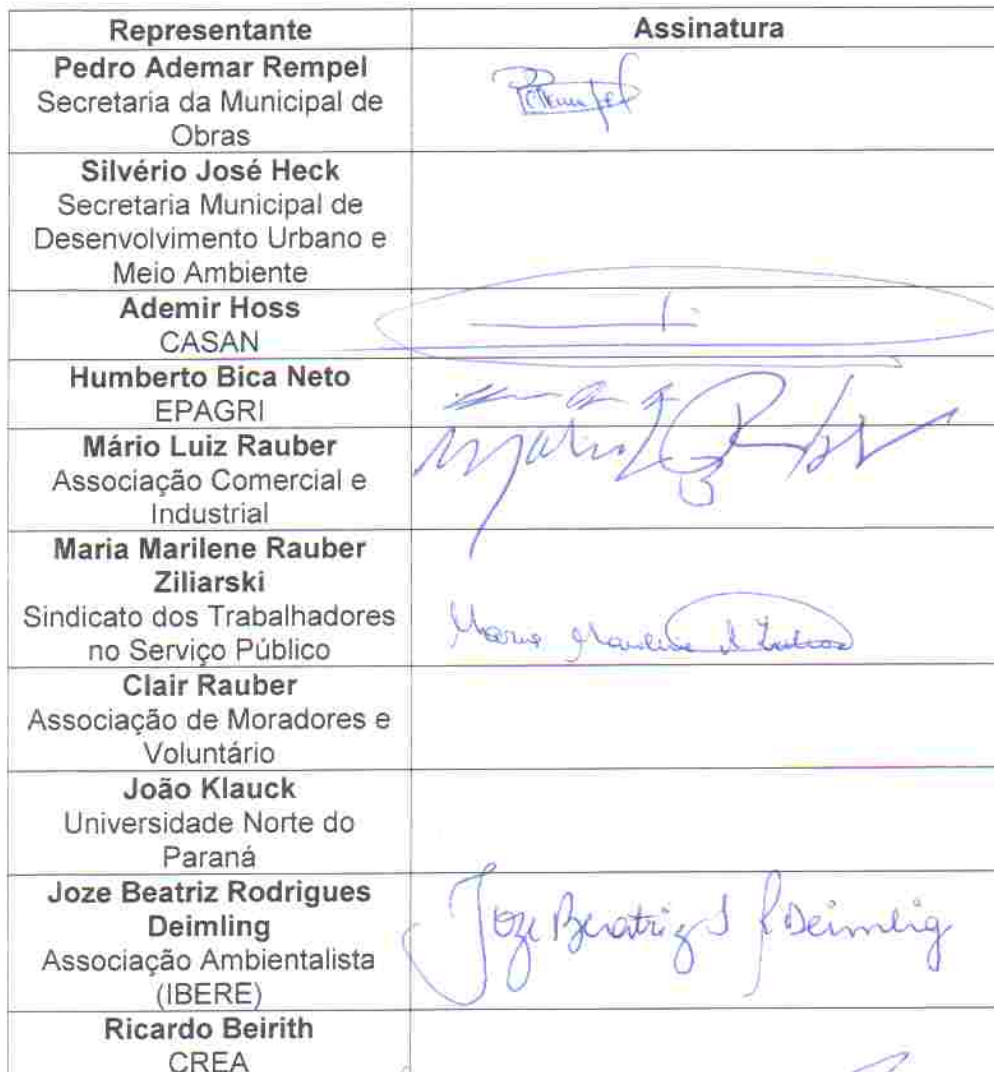 Representante Assinatura
Pedro Ademar Rempel
Secretaria da Municipal de
Obras
Silvério José Heck
Secretaria Municipal de
Desenvolvimento Urbano e
Meio Ambiente
Ademir Hoss
CASAN
Humberto Bica Neto
EPAGRI
Mário Luiz Rauber
Associação Comercial e
Industrial
Maria Marilene Rauber
Ziliarski
Sindicato dos Trabalhadores
no Serviço Público
Maria Marilene
Clair Rauber
Associação de Moradores e
Voluntário
João Klauck
Universidade Norte do
Paraná
Joze Beatriz Rodrigues
Deimling
Associação Ambientalista
(IBERE)
Joze Beatriz Deimlig
Ricardo Beirith
CREA